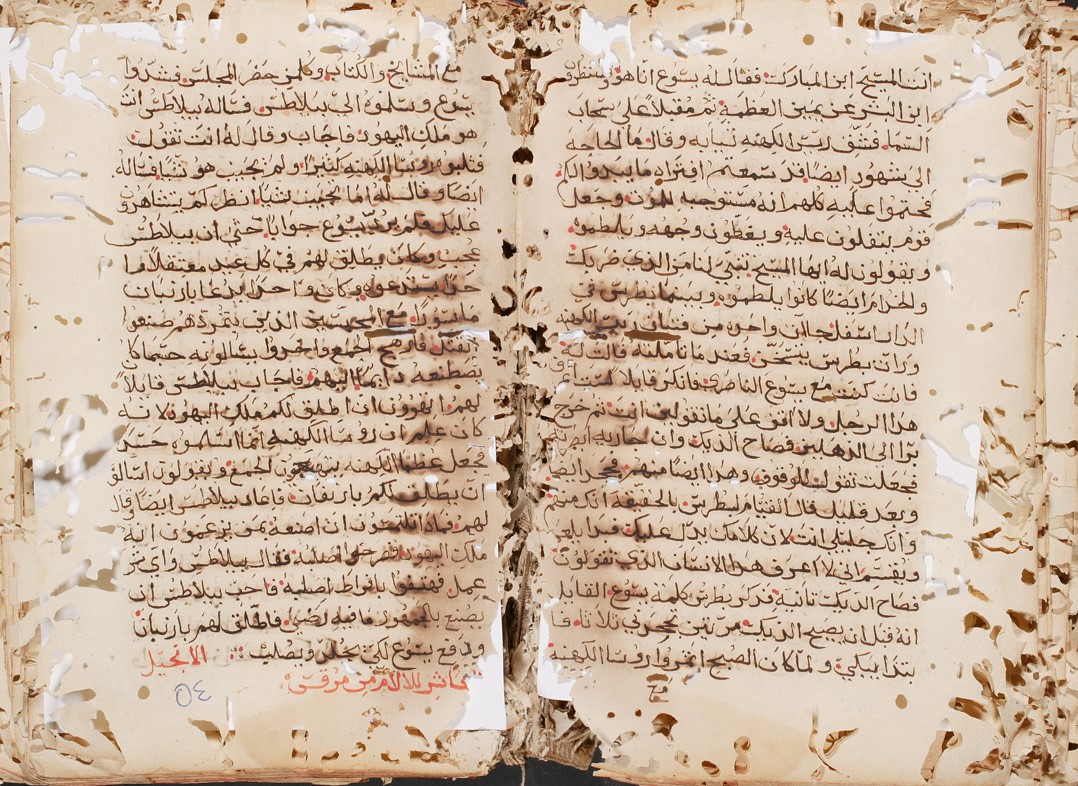 انت المسيح ابن المبارك فقال له يسوع انا هو وستنظرون
ابن البشر عن يمين العظمة ثم مقبلا على سحاب
السما فشق ريس الكهنه ثيابه وقال ما الحاجه
الى شهود ايضا قد سمعتم افتراه ما يبدوا لكم
فحتموا عليه كلهم انه مستوجبه للموت وجعل
قوم يتفلون عليه ويغطون وجهه ويلطموه
ويقولون له ايها المسيح تنبى لنا من الذي ضربك
والخدام ايضا كانوا يلطموه وبينما بطرس في
الدار اسفل جات واحده من فتيات ريس الكهنه
ورات بطرس يتسخن فعند ما تاملته قالت له
وانت كنت مع يسوع الناصري فانكر قايلا لست اعرف
هذا الرجل ولا اقف على ما تقولين انت ثم خرج
برا الى الدهليز فصاح الديك وان جاريه ابصرته
فجعلت تقول للوقوف وهذا ايضا منهم فجحد ايضا
وبعد قليل قال القيام لبطرس بالحقيقة انك منهم
وانك جليلي انت لان كلامك يدل عليك فبدا يلعن
ويقسم اني لا اعرف هذا الانسان الذي تقولون
فصاح الديك ثانية فذكر بطرس كلمه يسوع القايل
انه قبل ان يصيح الديك مرتين تجحدني ثلاثا
بدا يبكي ولما كان الصبح ايتمروا روسا الكهنه
مع المشايخ والكتاب وكل من حضر المجلس وشدوا
يسوع وسلموه الى بيلاطس فساله بيلاطس انت
هو ملك اليهود فاجاب وقال له انت تقول
فثلبوه روسا الكهنه كثيرا ولم يجيب هو شيا فساله
ايضا وقال له اما تجيب شيا انظر كم يتشاهدون
عليك فلم يرد يسوع جوابا حتى ان بيلاطس
تعجب وكان يطلق لهم في كل عيد معتقلا
يستدعوه وكان واحدا يدعا بارنبان
ماسورا مع الذين بتمردهم صنعوا
القتل فارهج الجمع واخروا يسالو به حسب ما كان
يصطنعه دايما اليهم فاجاب بيلاطس قايلا
لهم اتهوون ان اطلق لكم ملك اليهود لانه
كان علم ان روسا الكهنه انما اسلموه حسدا
فجعل عظما الكهنه يهيجون الجمع ويقولون اسالو
ان يطلق لكم بارنبان فاعاد بيلاطس ايضا وقال
لهم فماذا تحبون ان اصنعه بمن تزعمون انه
ملك اليهود فصرخوا اصلبه فقال بيلاطس واي شر
عمل فهتفوا بافراط اصلبه فاحب بيلاطس ان
يصنع بالجمهور ما فيه رضيا فاطلق لهم بارنبان
ودفع يسوع لكي يجلد ويصلب الانجيل
العاشر للالام من مرقس
٥٤